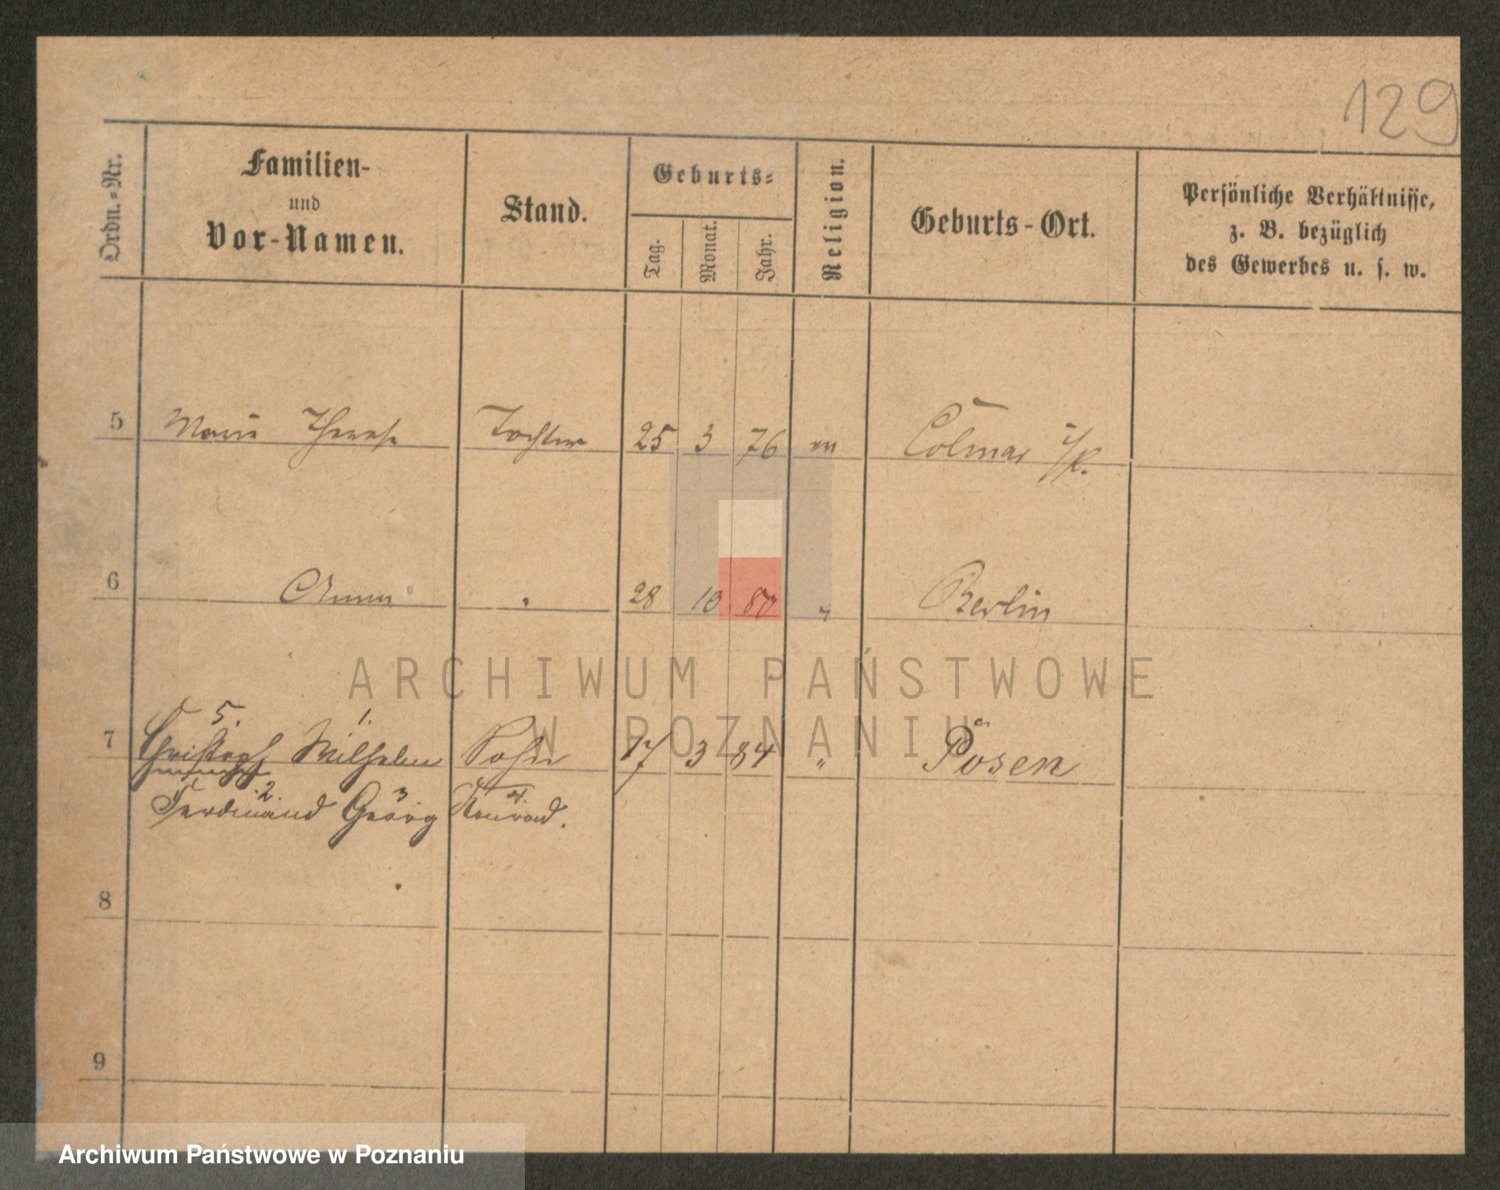 129
Ordn.-Nr.
Familien-
und
Vor-Namen.
Stand.
Geburts-
Tag.
Monat.
Jahr.
Religion.
Geburts-Ort.
Persönliche Verhältnisse,
z. B. bezüglich
des Gewerbes u. s. w.
5 Marie Therese Tochter 25 3 76 ev Colmar i/P.
6 Anna " 28 10 80 " Berlin
ARCHIWUM PAŃSTWOWE
W POZNANIU
5. 1.
7 Christoph Wilhelm Sohn 17 3 84 " Posen
2. 3 4.
Ferdinand Georg Konrad.
8
9
Archiwum Państwowe w Poznaniu